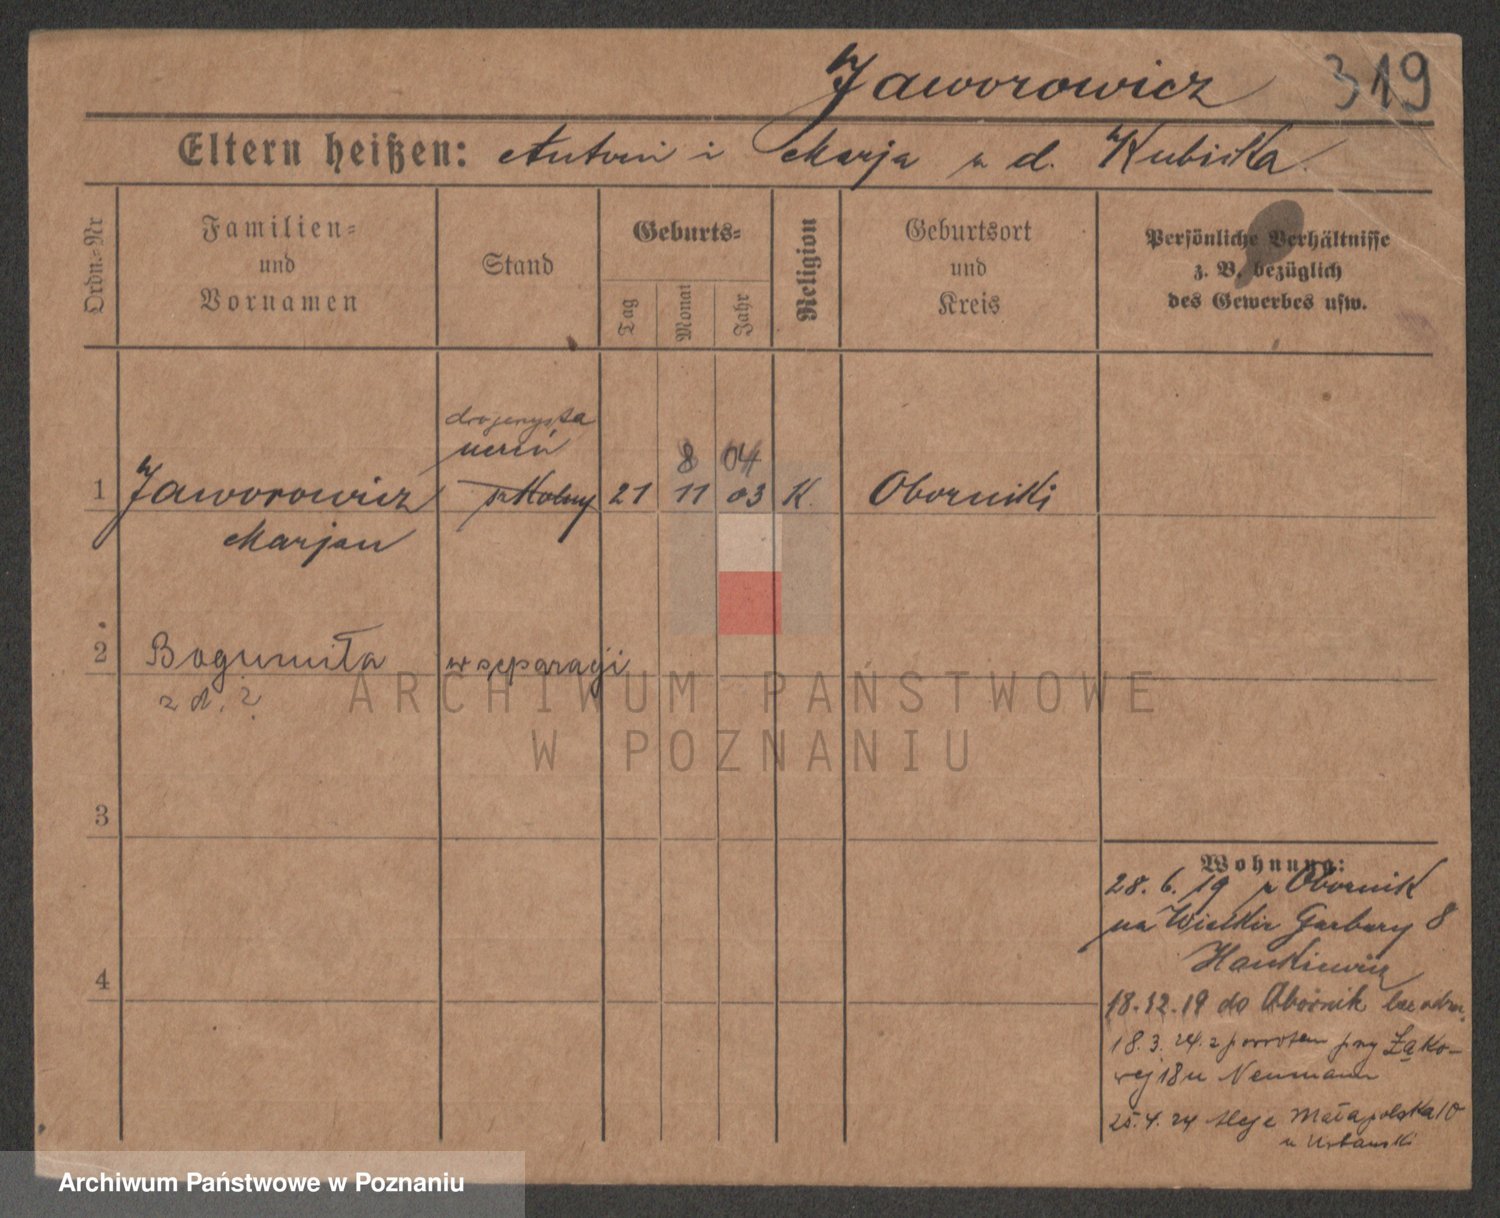 Jaworowicz 319
Eltern heißen: Antoni i Marja z d. Kubicka.
Ordn.-Nr
Familien-
und
Vornamen
Stand
Geburts-
Tag
Monat
Jahr
Religion
Geburtsort
und
Kreis
Persönliche Verhältnisse
z. B. bezüglich
des Gewerbes usw.
drogerysta
uczeń
8 04
1 Jaworowicz szkolny 21 11 03 K. Oborniki
Marjan
2 Bogumiła w separacji
z d. ?
3
4
Wohnung:
28. 6. 19 z Obornik
na Wielkie Garbary 8
Hankiewicz
18.12.19 do Obornik
18. 3. 24. z powrotem przy Łąko-
wej 18 u Neumann
25. 4. 24 Małapolska 10
u Urbański
ARCHIWUM PAŃSTWOWE
W POZNANIU
Archiwum Państwowe w Poznaniu